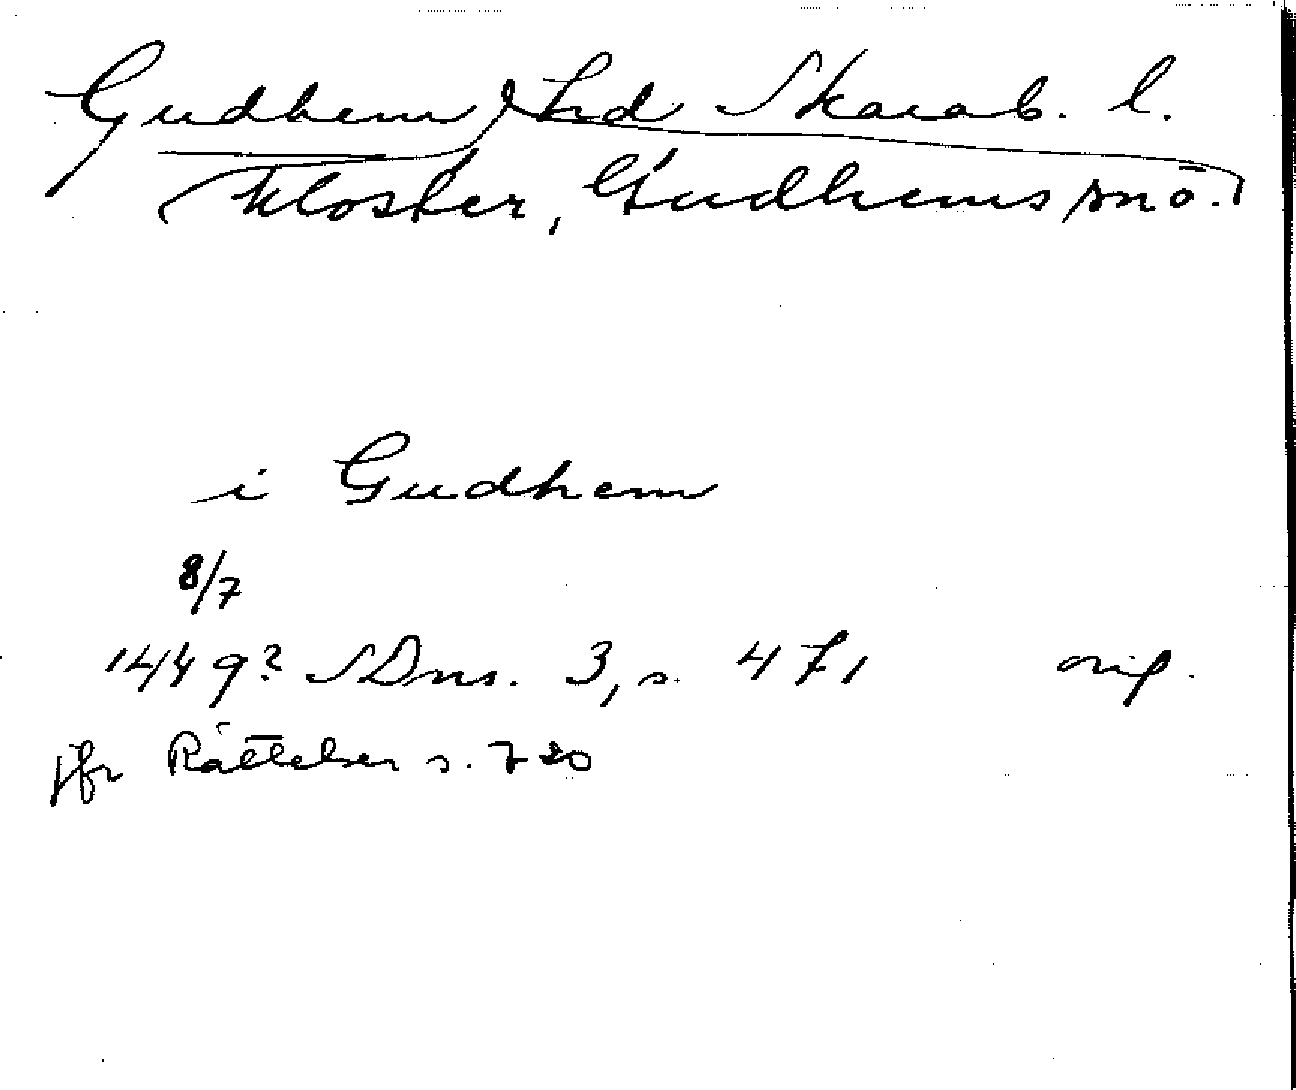 Gudhem hd Skarab. l.
kloster, Gudhems sn o.
i Gudhem
8/7
1449? SDns. 3, s. 471 orig.
jfr Rättelser s. 720